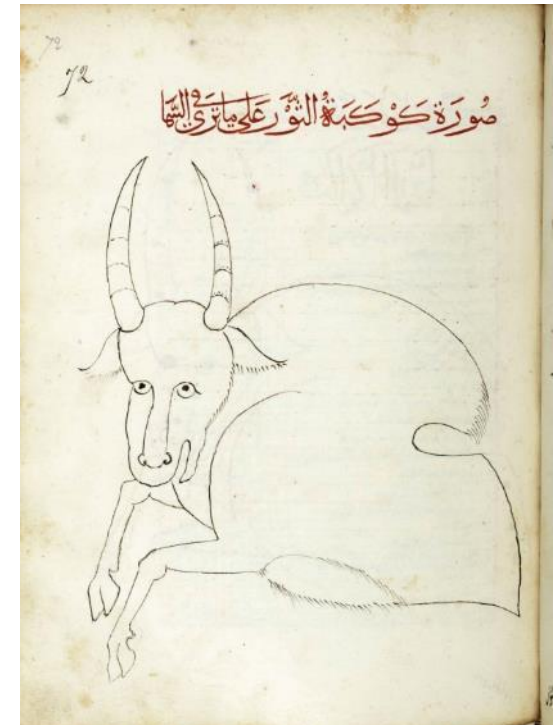 72
72
صُورَة كَوْكَبَةُ الثَّوْر عَلى ما تَرى فى السَّما